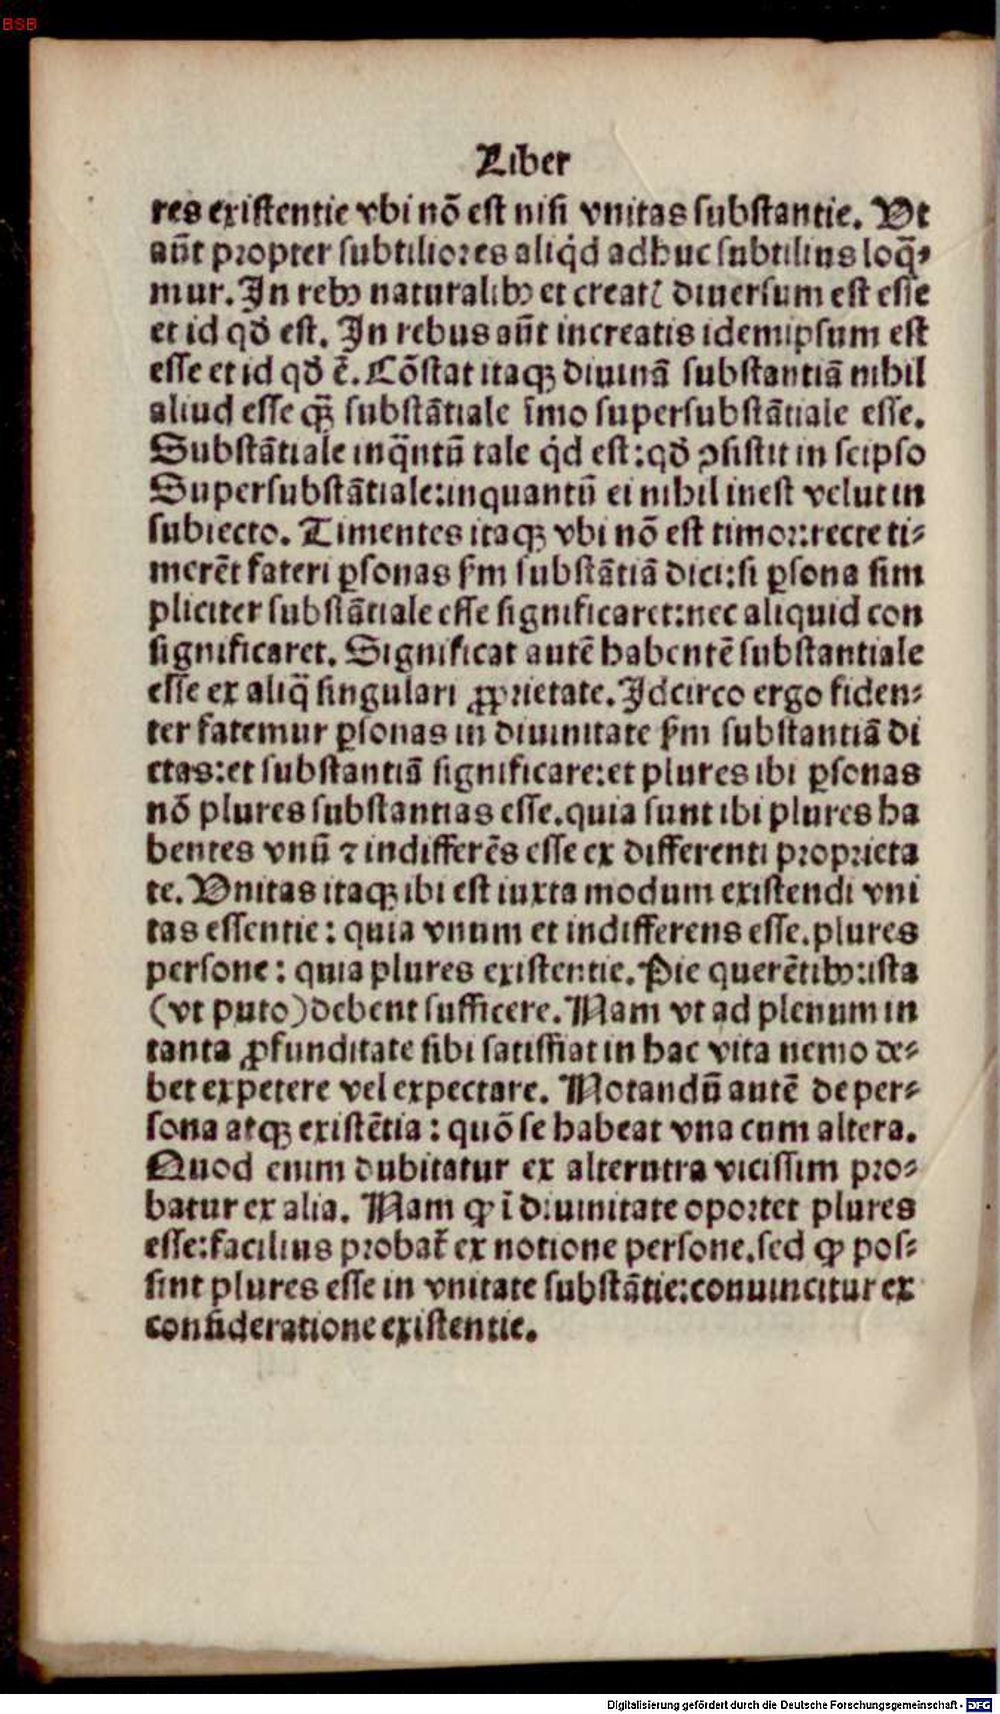 BSB
Liber
res existentie vbi nō est nisi vnitas substantie. Vt
aūt propter subtiliores aliq̇d adhuc subtilius loq̄⸗
mur. In rebꝰ naturalibꝰ et creatꝭ diuersum est esse
et id qđ est. In rebus aūt increatis idemipsum est
esse et id qđ ē. Cōstat itaqꝫ diuinā substantiā nihil
aliud esse qꝫ̄ substātiale īmo supersubstātiale esse.
Substātiale inq̄ntū tale q̇d est:qđ ꝯsistit in seipso
Supersubstātiale:inquantū ei nihil inest velut in
subiecto. Timentes itaqꝫ vbi nō est timor:recte ti⸗
merēt fateri ꝑsonas ẜm substātiā dici:si ꝑsona sim
pliciter substātiale esse significaret:nec aliquid con
significaret. Significat autē habentē substantiale
esse ex aliq̄ singulari ꝓprietate. Idcirco ergo fiden⸗
ter fatemur ꝑsonas in diuinitate ẜm substantiā di
ctas:et substantiā significare:et plures ibi ꝑsonas
nō plures substantias esse.quia sunt ibi plures ha
bentes vnū ⁊ indifferēs esse ex differenti proprieta
te. Vnitas itaqꝫ ibi est iuxta modum existendi vni
tas essentie: quia vnum et indifferens esse.plures
persone: quia plures existentie. Pie querētibꝰ:ista
(vt puto) debent sufficere. Nam vt ad plenum in
tanta ꝓfunditate sibi satisfiat in hac vita nemo de⸗
bet expetere vel expectare. Notandū autē de per⸗
sona atqꝫ existētia: quō se habeat vna cum altera.
Quod enim dubitatur ex alterutra vicissim pro⸗
batur ex alia. Nam ꝙ ī diuinitate oportet plures
esse:facilius probat̄ ex notione persone.sed ꝙ pos⸗
sint plures esse in vnitate substātie:conuincitur ex
consideratione existentie.
Digitalisierung gefördert durch die Deutsche Forschungsgemeinschaft - DFG